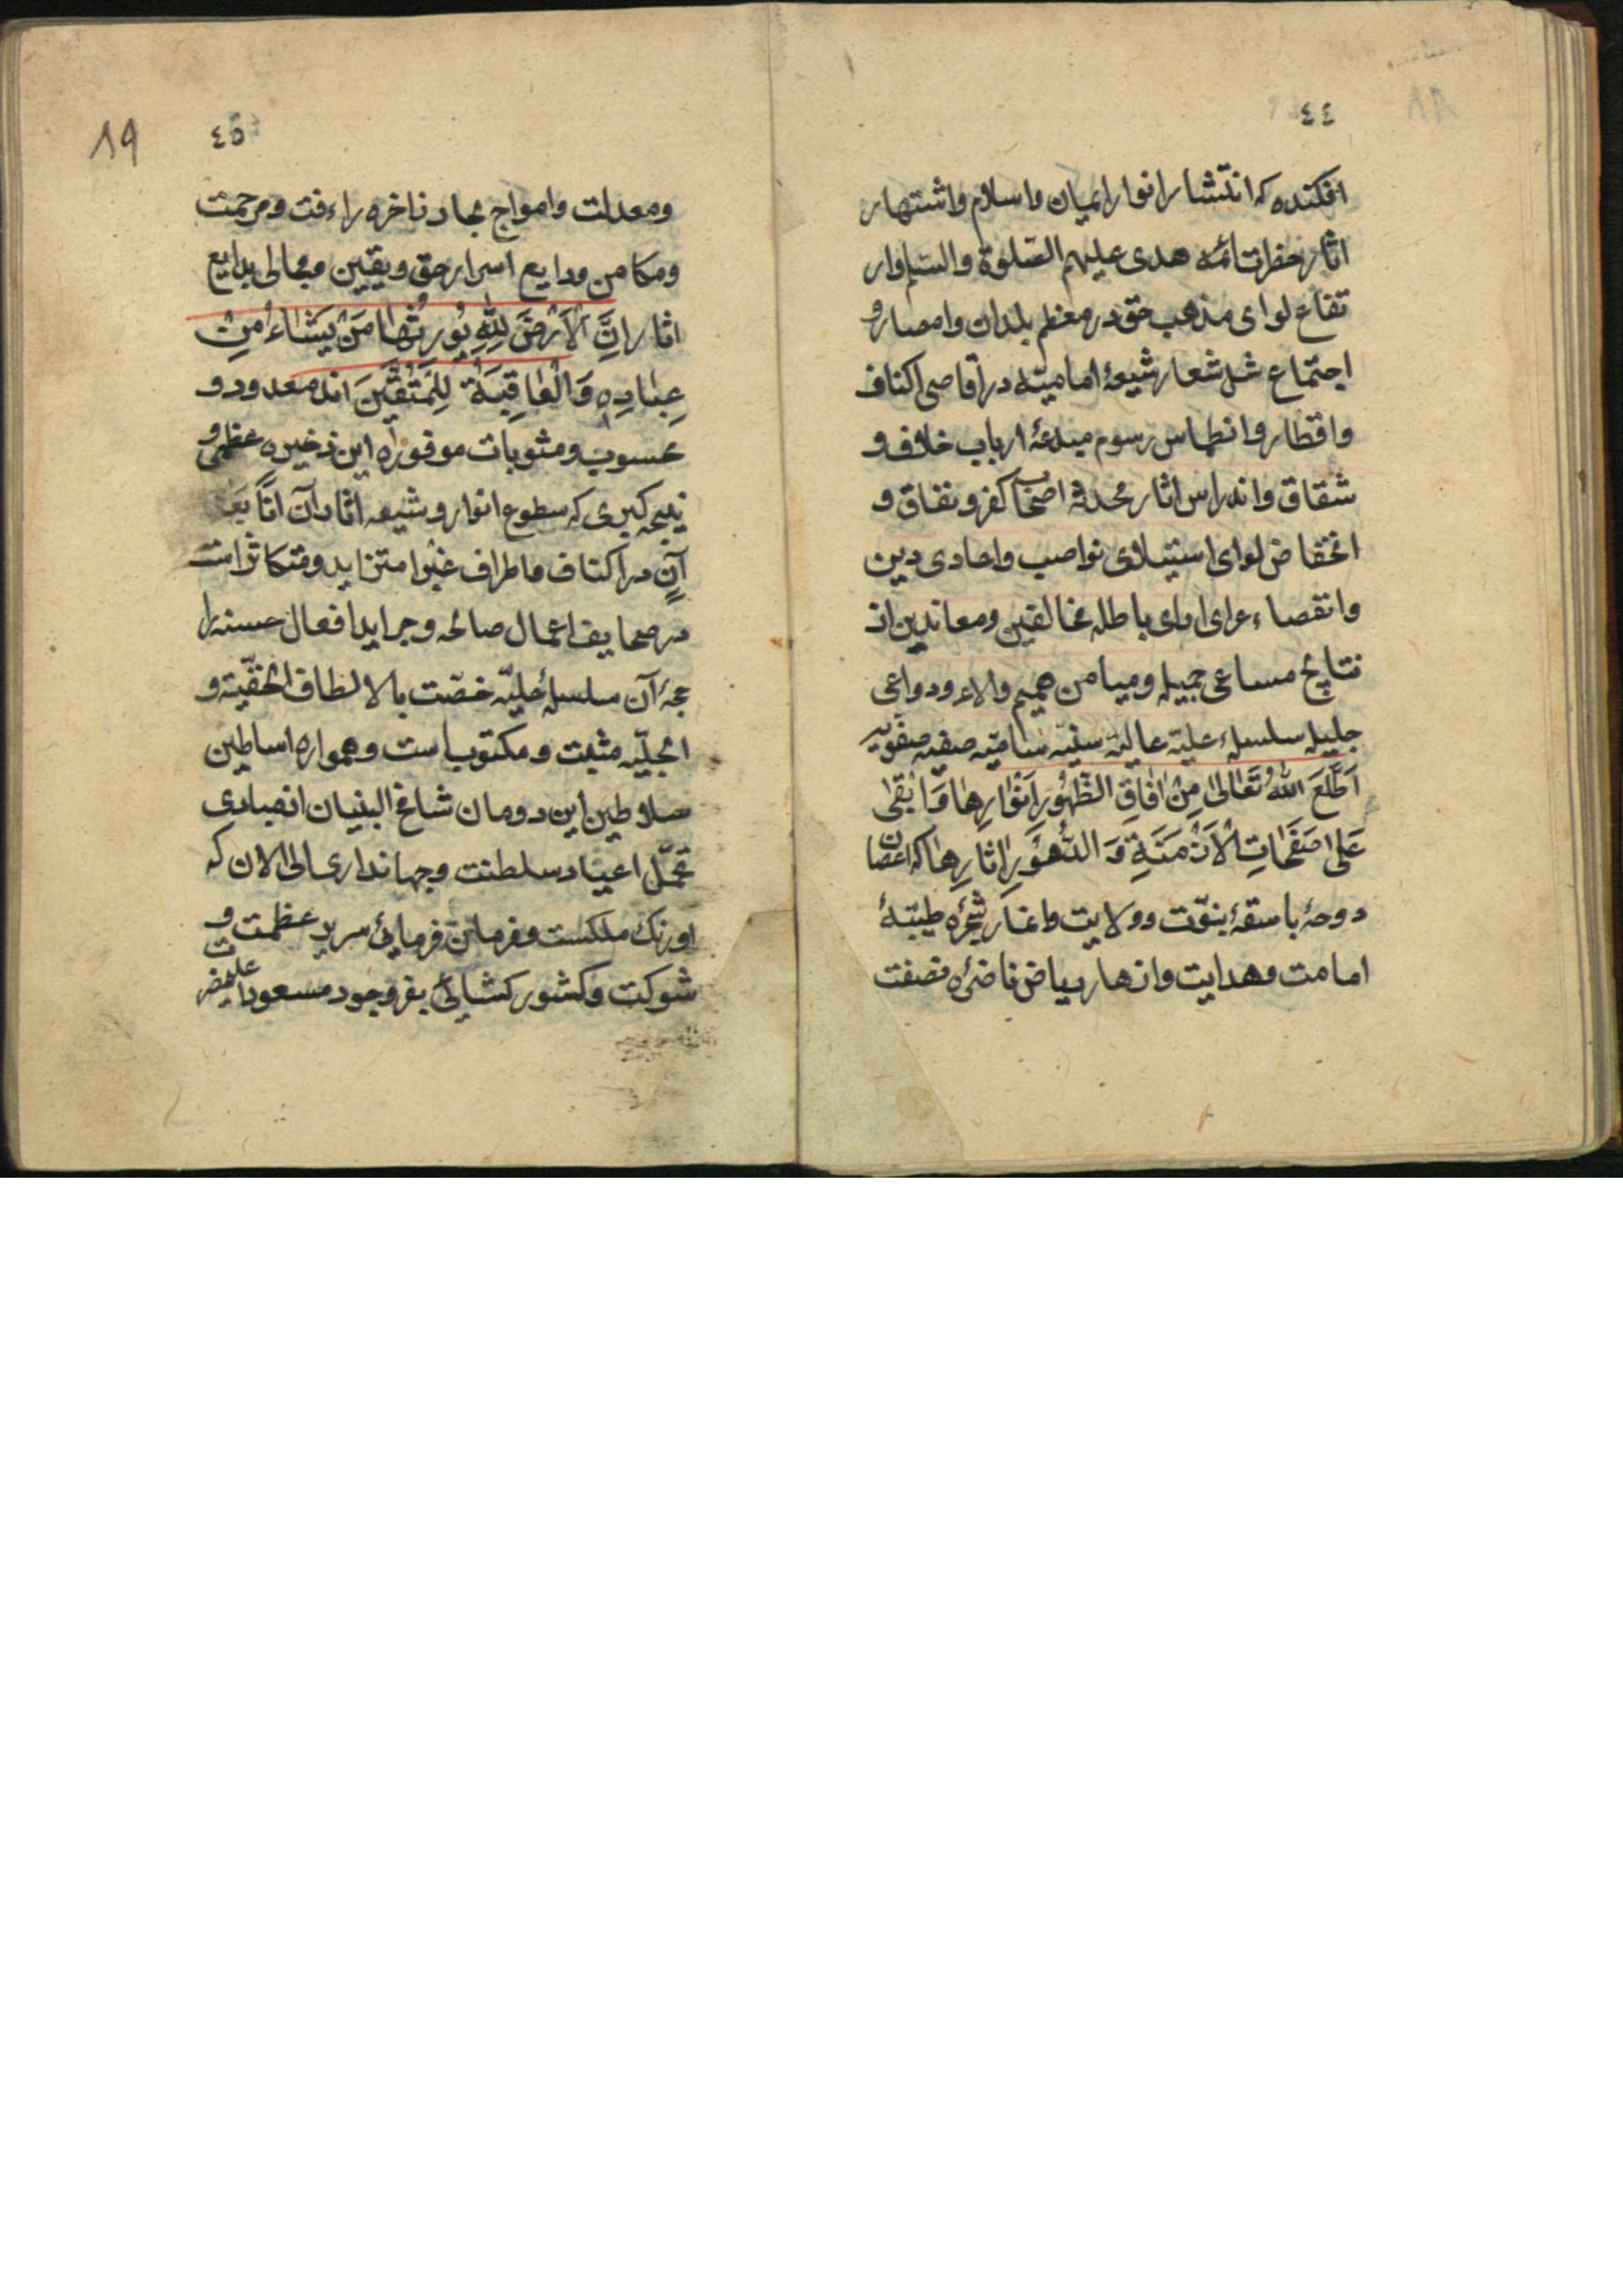 ٤٤
افکنده که انتشار انوار ایمان و اسلام و اشتهار
اثار حضرات ائمه هدی علیهم الصّلوة والسّلم وار
تفاع لوای مذهب حق در معظم بلدان و امصار و
اجتماع شمل شعار شیعۀ امامیّه در اقاصی اکناف
و اقطار و انطماس رسوم مبدعۀ ارباب خلاف و
شقاق و اندراس اثار محدثۀ اصحاب کفر و نفاق و
انخفاض لوای استیلای نواصب و اعادی دین
و انفصاء عرای اراء باطله مخالفین و معاندین از
نتایج مساعی جمیله و میامن همم والاء و دواعی
جلیله سلسلهء علیّه عالیه سنیّه سامیّه صفیه صفویه
اَطْلَعَ اللهُ تَعَالٰی مِنْ اٰفَاقِ الظُّهُورِ اَنْوَارِهَا وَ اَبْقٰی
عَلٰی صَفَحَاتِ الْاَزْمَنَةِ وَ الدُّهُوْرِ اٰثارِهَا که اغصان
دوحۀ باسقۀ نبوّت و ولایت و اثمار شجرۀ طیّبۀ
امامت و هدایت و انهار ریاض ناضرۀ نصفت
٤٥
19
و معدلت و امواج بحار زاخره راءفت و مرحمت
و مکامن ودایع اسرار حق و یقین و مجالی بدایع
اثار اِنَّ الْاَرْضَ لِلّٰهِ یُوْرِثُهَا مَنْ یَشَاءُ مِنْ
عِبَادِهِ وَ الْعَاقِبَةُ لِلْمُتَّقِیْنَ اند معدود و
محسوب و مثوبات موفورۀ این ذخیره عظمی و
نتیجه کبری که سطوع انوار و شیوع اثار آن اٰنًا بَعْدَ
آنٍ در اکناف و اطراف غبرا متزاید و متکاثر است
در صحایف اعمال صالحه و جراید افعال حسنه
آن سلسلۀ جلیّه خصّت بالالطاف الخفیّة و
الجلیّه مثبت و مکتوب است و همواره اساطین
سلاطین این دودمان شامخ البنیان از مبادی
تحمّل اعباء سلطنت و جهانداری الی الان که
اورنک مملکت و فرمان فرمایی سریر عظمت و
شوکت و کشورکشایی بفر وجود مسعود اعلیحضرت